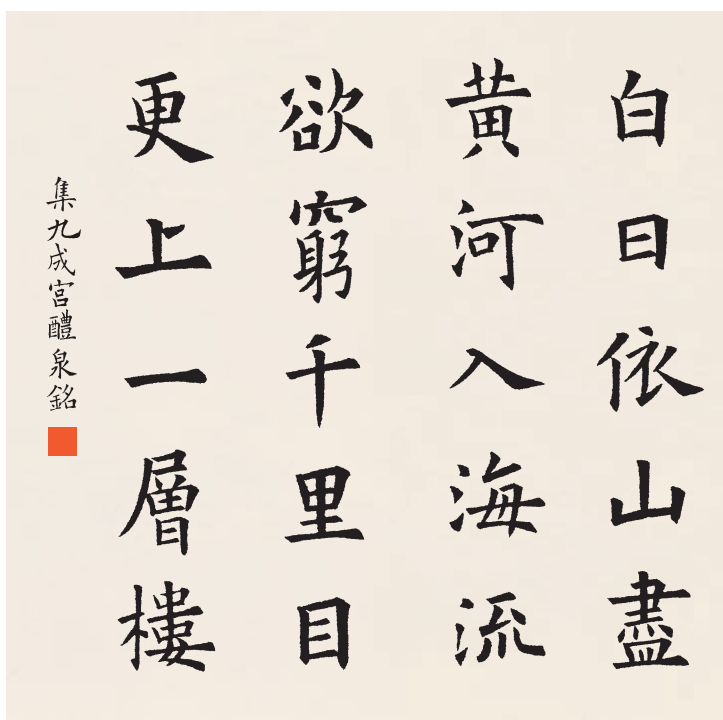 白日依山盡
黄河入海流
欲窮千里目
更上一層樓
集九成宮醴泉銘